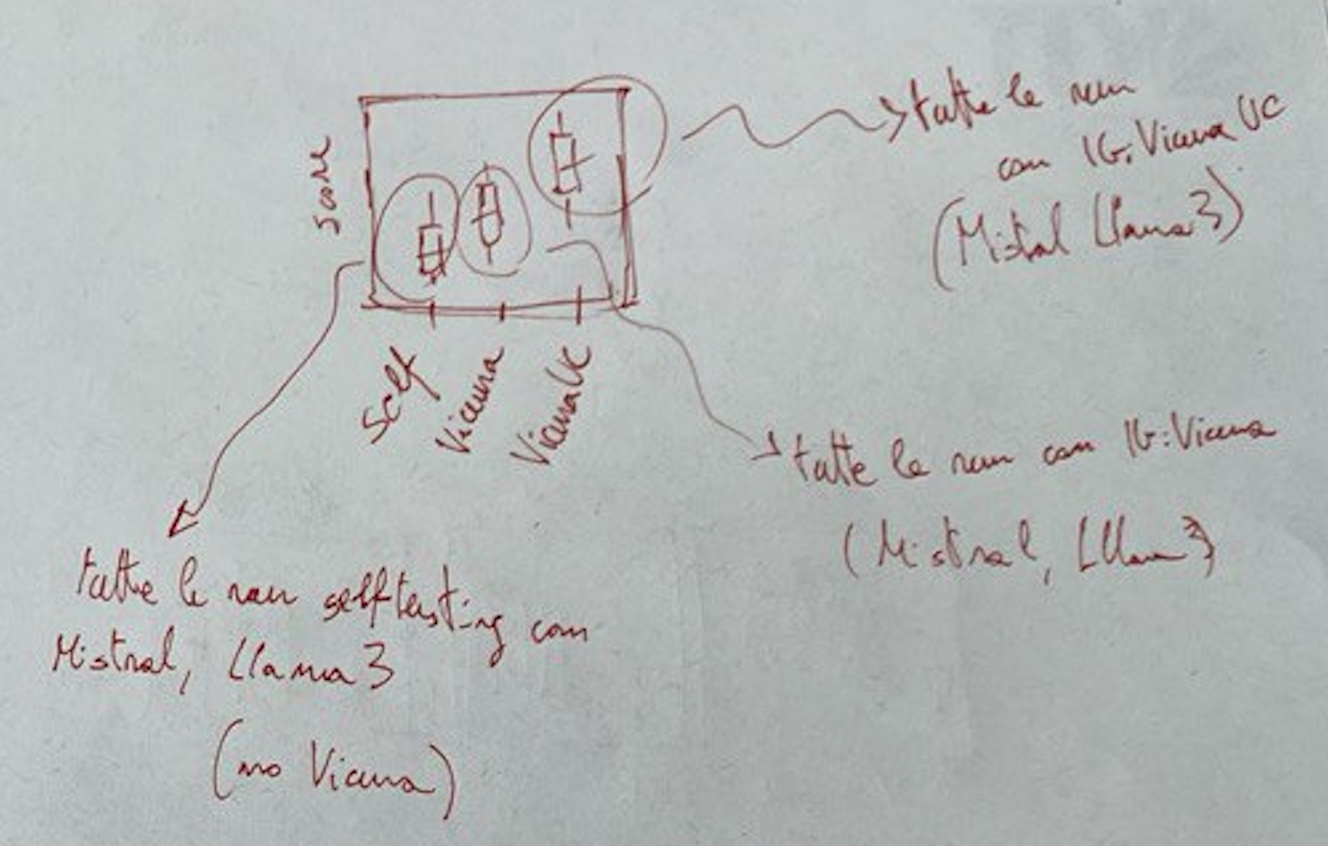 Score
Self
Vicuna
VicunaUC
tutte le run
con IG:Vicuna UC
(Mistral Llama3)
tutte le run con IG:Vicuna
(Mistral, Llama3)
tutte le run selftesting con
Mistral, Llama3
(no Vicuna)